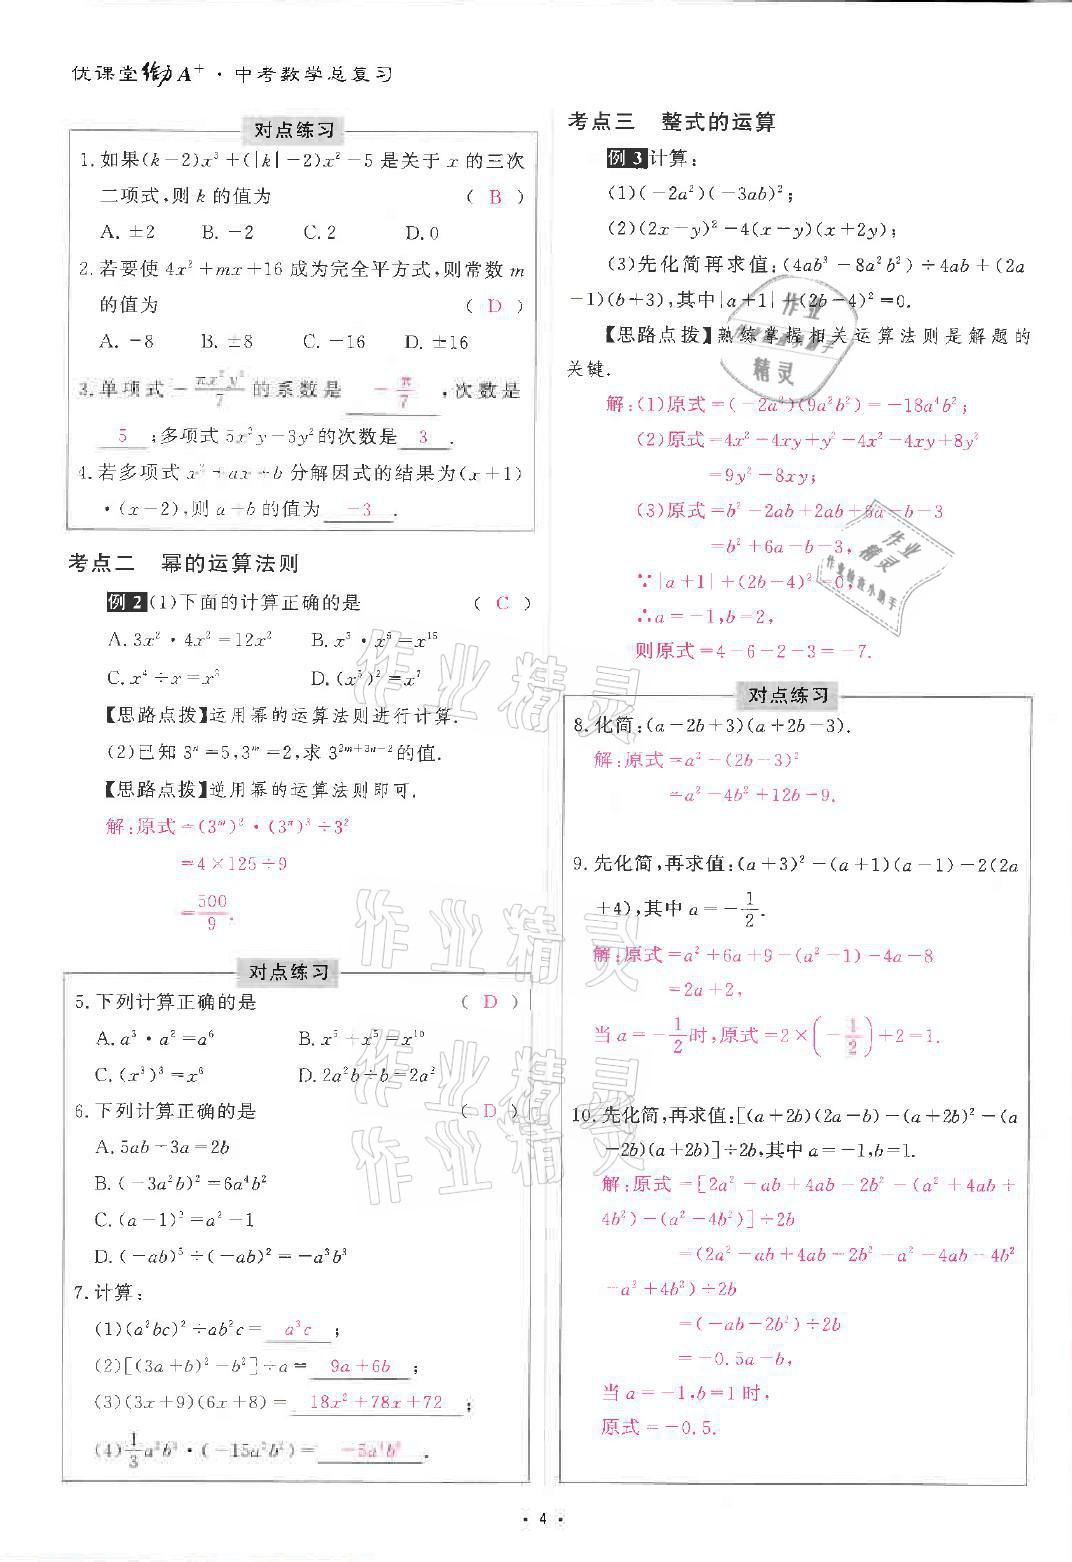 优课堂给力A⁺·中考数学总复习
对点练习
1.如果(k-2)x³+(|k|-2)x²-5是关于x的三次
二项式,则k的值为 ( B )
A.±2 B.-2 C.2 D.0
2.若要使4x²+mx+16成为完全平方式,则常数m
的值为 ( D )
A.-8 B.±8 C.-16 D.±16
3.单项式-πx²y²/7的系数是 -π/7 ,次数是
5 ;多项式5x²y-3y²的次数是 3 .
4.若多项式x²+ax+b分解因式的结果为(x+1)
·(x-2),则a+b的值为 -3 .
考点二 幂的运算法则
例2 (1)下面的计算正确的是 ( C )
A.3x²·4x²=12x² B.x³·x⁵=x¹⁵
C.x⁴÷x=x³ D.(x⁵)²=x⁷
【思路点拨】运用幂的运算法则进行计算.
(2)已知3ⁿ=5,3ᵐ=2,求3²ᵐ⁺³ⁿ⁻²的值.
【思路点拨】逆用幂的运算法则即可.
解:原式=(3ᵐ)²·(3ⁿ)³÷3²
=4×125÷9
=500/9.
对点练习
5.下列计算正确的是 ( D )
A.a³·a²=a⁶ B.x⁵+x⁵=x¹⁰
C.(x³)³=x⁶ D.2a²b÷b=2a²
6.下列计算正确的是 ( D )
A.5ab-3a=2b
B.(-3a²b)²=6a⁴b²
C.(a-1)²=a²-1
D.(-ab)⁵÷(-ab)²=-a³b³
7.计算:
(1)(a²bc)²÷ab²c= a³c ;
(2)[(3a+b)²-b²]÷a= 9a+6b ;
(3)(3x+9)(6x+8)= 18x²+78x+72 ;
(4)1/3a²b³·(-15a²b²)= -5a⁴b⁵ .
考点三 整式的运算
例3 计算:
(1)(-2a²)(-3ab)²;
(2)(2x-y)²-4(x-y)(x+2y);
(3)先化简再求值:(4ab³-8a²b²)÷4ab+(2a
-1)(b+3),其中|a+1|+(2b-4)²=0.
【思路点拨】熟练掌握相关运算法则是解题的
关键.
解:(1)原式=(-2a²)(9a²b²)=-18a⁴b²;
(2)原式=4x²-4xy+y²-4x²-4xy+8y²
=9y²-8xy;
(3)原式=b²-2ab+2ab+6a-b-3
=b²+6a-b-3,
∵|a+1|+(2b-4)²=0,
∴a=-1,b=2,
则原式=4-6-2-3=-7.
对点练习
8.化简:(a-2b+3)(a+2b-3).
解:原式=a²-(2b-3)²
=a²-4b²+12b-9.
9.先化简,再求值:(a+3)²-(a+1)(a-1)-2(2a
+4),其中a=-1/2.
解:原式=a²+6a+9-(a²-1)-4a-8
=2a+2,
当a=-1/2时,原式=2×(-1/2)+2=1.
10.先化简,再求值:[(a+2b)(2a-b)-(a+2b)²-(a
-2b)(a+2b)]÷2b,其中a=-1,b=1.
解:原式=[2a²-ab+4ab-2b²-(a²+4ab+
4b²)-(a²-4b²)]÷2b
=(2a²-ab+4ab-2b²-a²-4ab-4b²
-a²+4b²)÷2b
=(-ab-2b²)÷2b
=-0.5a-b,
当a=-1,b=1时,
原式=-0.5.
·4·
作业精灵
作业精灵
作业精灵
作业精灵
作业
作业检查小助手
精灵
作业
精灵
作业检查小助手